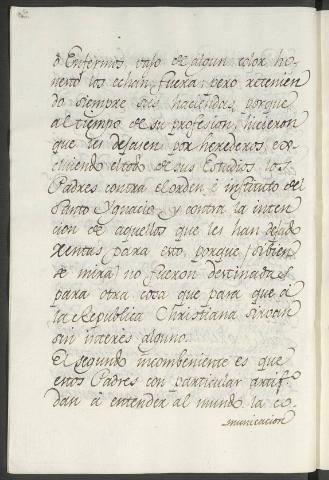 ô Enfermos, vajo de algun color ho-
nesto los echan fuera; pero retenien
do siempre sus haciendas, porque
al tiempo de su profesion, hicieron
que les dejasen por herederos, ex-
cluiendo el tôto de sus Estudios los
Padres contra el orden, é instituto del
Santo Ygnacio, y contra la inten
cion de aquellos que les han dejado
Rentas para esto, porque (si bien
se mira) no fueron destinadas
para otra cosa que para que â
la Republica Christiana sirvan
sin interes alguno.
El segundo incombeniente es que
estos Padres con particular artif.º
dan â entender al mundo la co-
municacion